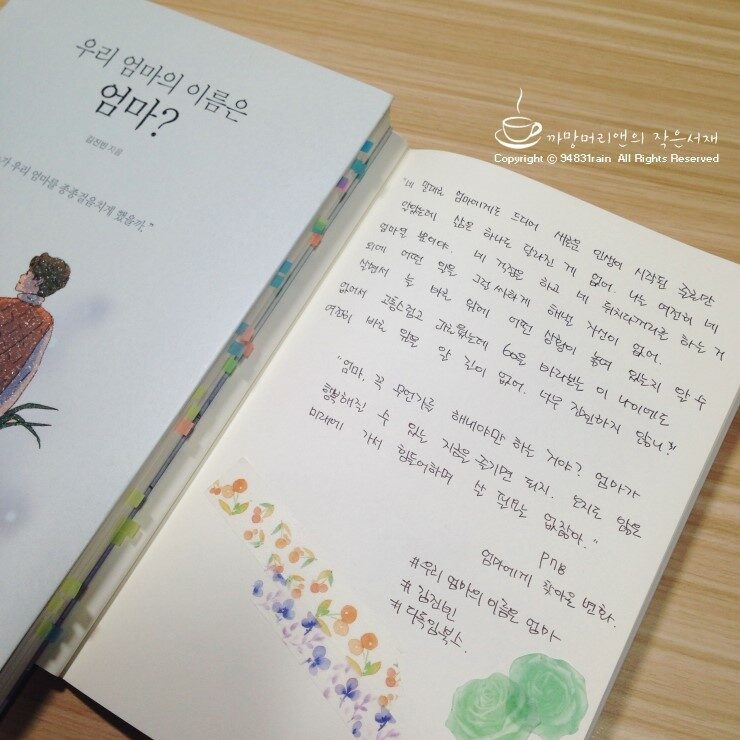 우리 엄마의 이름은
엄마?
김진빈 지음
가 우리 엄마를 종종걸음치게 했을까."
까망머리앤의 작은서재
Copyright ⓒ 94831rain All Rights Reserved
"네 말대로 엄마에게는 드디어 새로운 인생이 시작된 줄로만
알았는데 삶은 하나도 달라진 게 없어. 나는 여전히 네
엄마일 뿐이야. 네 걱정을 하고 네 뒤치다꺼리를 하는 거
외에 어떤 일을 그럴싸하게 해낼 자신이 없어.
살면서 늘 바로 앞에 어떤 상황이 놓여 있는지 알 수
없어서 고통스럽고 괴로웠는데 60을 바라보는 이 나이에도
여전히 바로 앞을 알 길이 없어. 너무 잔인하지 않니?"
"엄마, 꼭 무언가를 해내야만 하는 거야? 엄마가
행복해질 수 있는 지금을 즐기면 되지. 오지도 않은
미래에 가서 힘들어하며 살 필요는 없잖아."
P78
엄마에게 찾아온 변화.
#우리 엄마의 이름은 엄마
#김진빈
#다독임북스.